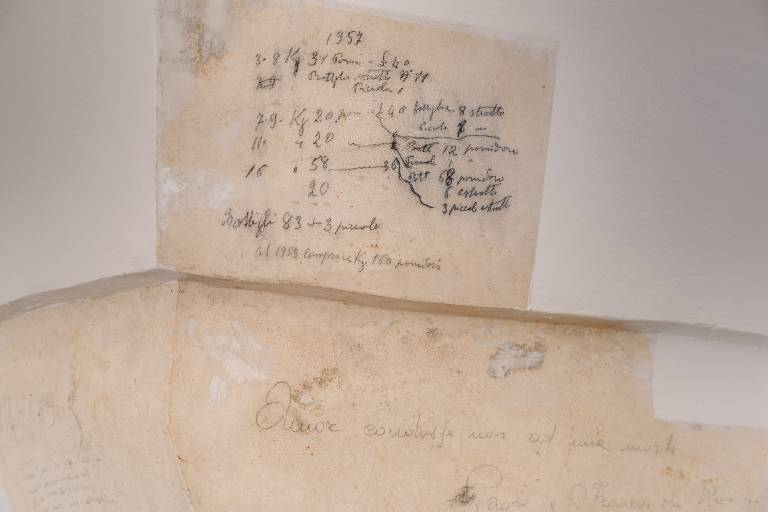 1957
3-8 Kg 31 Pom - £ 40
Bottiglie estratto N° 11
Piccole 1
7-9- Kg 20 pom - £ 40 bottiglie 8 stratto
Piccole 1 "
11- " 20 Bott 12 pomidoro
Piccole 1 "
16 " 58 36 Bott 68 pomidoro
20 6 estratto
3 piccole stratto
Bottigli 83 + 3 piccole
al 1958 comprare Kg 160 pomidori
Amor condusse noi ad una morte
Paolo e Francesca